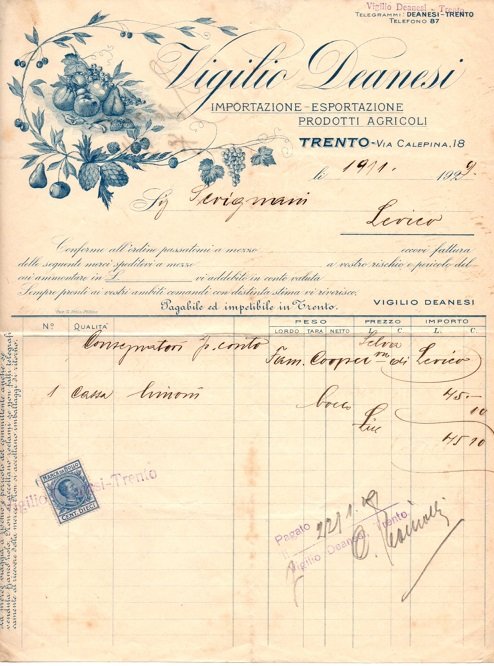 Vigilio Deanesi - Trento
TELEGRAMMI: DEANESI-TRENTO
TELEFONO 87
Vigilio Deanesi
IMPORTAZIONE-ESPORTAZIONE
PRODOTTI AGRICOLI
TRENTO-VIA CALEPINA, 18
li 19/1. 1929.
Sig
Levico
Conforme all'ordine passatomi a mezzo eccovi fattura
delle seguenti merci speditevi a mezzo a vostro rischio e pericolo del
cui ammontare in L vi addebito in conto valuta
Sempre pronti ai vostri ambiti comandi con distinta stima vi riverisco,
Pagabile ed impetibile in Trento.
VIGILIO DEANESI
No QUALITÀ PESO PREZZO IMPORTO
LORDO TARA NETTO L. C. L. C.
p. conto
Fam. Cooper di Levico
1 Cassa limoni 45.-
bollo 10
Lire 45 10
MARCA DA BOLLO
CENT. DIECI
Vigilio Deanesi-Trento
Pagato
li 22/1.
Vigilio Deanesi, Trento